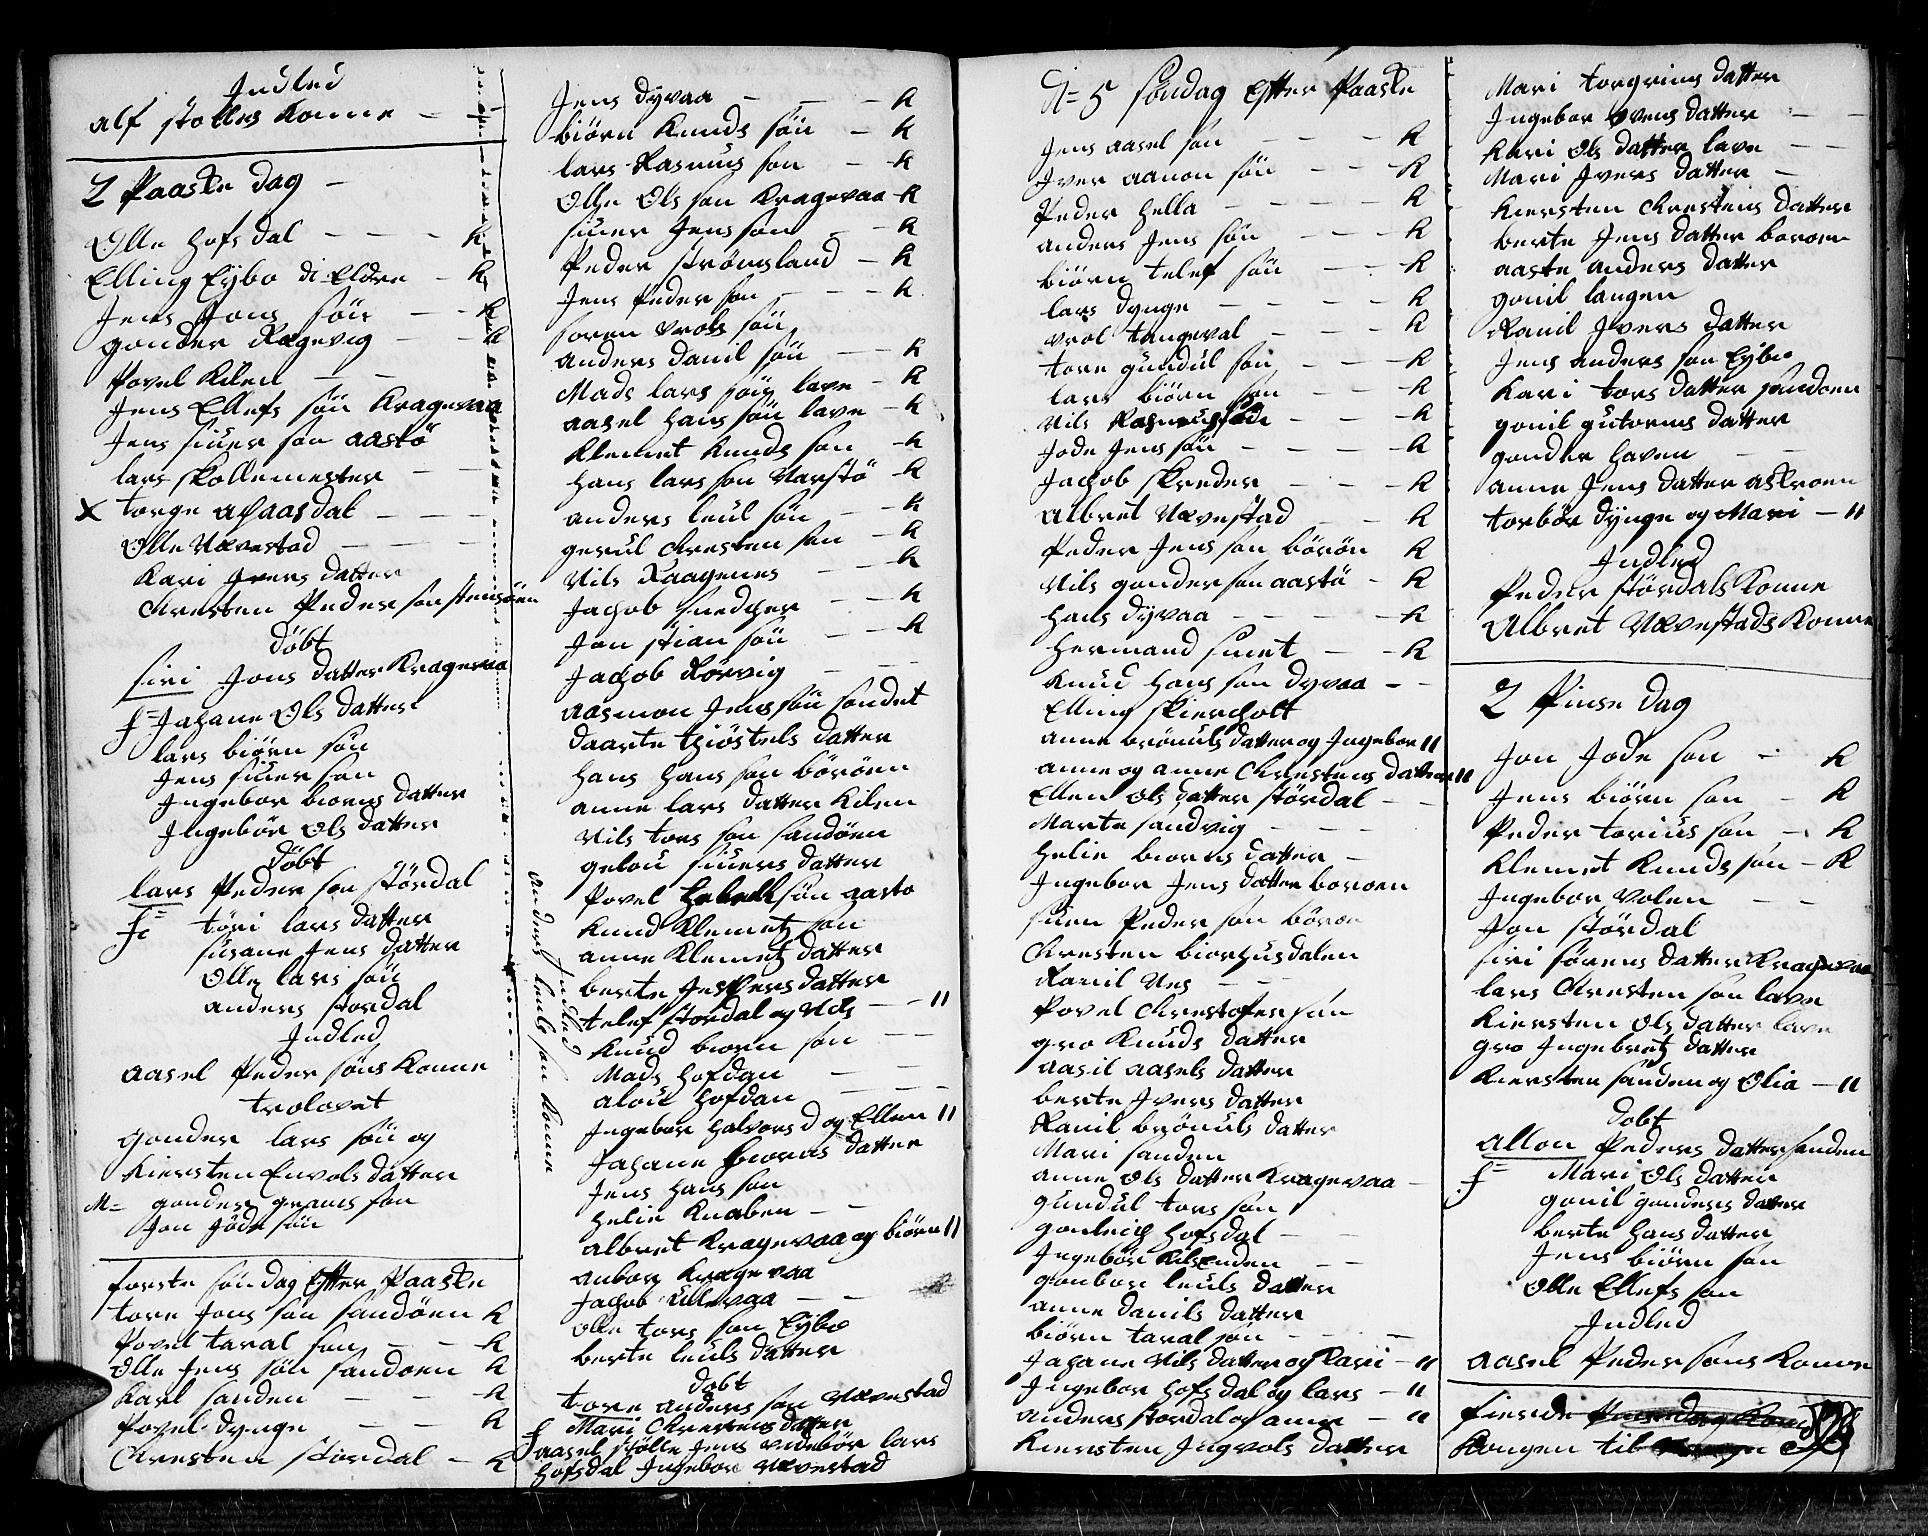 Indled
alf stølles Konne - -
2 Paaske Dag -
Olle hofs dal - - - K
Elling Eÿbo di Eldre - K
Jens Jons søn - - K
gonder Rægevig - - K
Povel Kilen - -
Jens Ellefs søn Kragevaa
Jens siuer søn aastö
lars skollemester - -
x torge ahaasdal - - -
Olle Nævestad - - -
Kari Ivers datter
Chresten Peder søn stensöen
döbt
siri Jons datter Kragevaa
f= Johane Ols datter
lars biörn søn
Jens siuer søn
Ingebor biorns datter
Ingebör Ols datter
döbt
lars Peder søn stördal
f= töri lars datter
susane Jens datter
Olle lars søn
anders stordal
Indled
aasel Peder søns Konne
trolovet
gonder lars søn og
Kiersten Envols datter
M= gonder grams søn
Jon Jöde søn
forste søndag Efter Paaske
tore Jens søn sandöen K
Povel taral søn - - K
Olle Jens søn sandoen K
Karl sanden - - K
Povel dynge - - K
Chresten stordal - K
Jens dyvaa - - - K
biörn Knuds søn - K
lars Rasmus søn - K
Olle Ols søn Kragevaa - K
siuer Jens søn - - K
Peder strömsland - K
Jens Peder søn - - K
soren vrols søn
anders danil søn - - K
Mads lars søn lave - K
aasel hans søn lave - K
Klemet Knuds søn - K
hans lars søn Narstö - K
anders leul søn - - K
gerul Chresten søn - K
Nils Raagenes - - K
Jachob snedcher - - K
Jon stian søn - - K
Jachob Rörvig - - -
aasmon Jens søn sondet
daarte thiöstels datter
hans hans søn böröen
anne lars datter Kilen
Nils tors søn sandöen
gelou siuers datter
Povel søn aasto
Knud Klemetz søn
anne Klemetz datter
berte Jespers datter
telef stordal og Nils - - 11
Knud biorn søn - -
Mads hofdan - -
alouf hofdan - - -
Ingebor halvors d og Ellen 11
Johane biorns datter
Jens hans søn
helie Knaben - -
albret Kragevaa og biörn 11
anbor Kragevaa
Jachob Ullevaa - -
Olle tors søn Eÿbo
berte leuls datter
döbt
tore anders søn Nævestad
f Mari Chrestens datter
aasel stölle Jens vrebör lars
hofsdal Ingebor Nævestad
Indled
anders leuls søn Konne
D= 5 søndag Efter Paaske
Jens aasel søn - - K
Iver aanon søn - - K
Peder hella - - - - K
anders Jens søn - - K
biörn telef søn - - K
lars dynge - - - - K
vrol tangeval - - - K
tore gundul søn - - K
lars biörn søn - - K
Nils Rasmus søn - - K
Jode Jens søn - - - K
Jachob skreder - - K
Albret Nævestad - - K
Peder Jens søn börön K
Nils gonder søn aastö - K
hans dÿvaa - - - - K
hermand smet - - K
Knud hans søn dyvaa - -
Elling skiercholt
anne brönuls datter og Ingebor 11
anne og anne Chrestens datter 11
Ellen Ols datter stördal - -
Marte sandvig - - -
helie biorns datter -
Ingebor Jens datter boroen
suen Peder søn böröe
Chresten biorhusdalen
Ranil Nes - -
Povel Chrestofer søn
gro Knuds datter
aasil aasels datter
berte Ivers datter
Ranil brönuls datter
Mari sanden
anne Ols datter Kragevaa -
gundul tors søn
gonleich hofsdal - -
Ingebör Kilsenden - -
gonbor leuls datter
anne danils datter
biörn taral søn - - -
Johane Nils datter og Kari - 11
Ingebor hofs dal og lars - 11
anders stordal og anne - 11
Kiersten Ingvols datter
Mari torgrims datter
Ingebor Svens datter - -
Kari Ols datter lave - -
Mari Ivers datter -
Kiersten Chrestens datter
berte Jens datter boroen
aaste anders datter
gonil langen
Ranil Ivers datter
Jens anders søn Eÿbo
Kari tors datter sandoen
gonil gutorms datter
gonder haven - -
anne Jens datter askroen
torbör dÿnge og Mari - 11
Indled
Peder stördals Konne
Albret Nævestads Konne
2 Pinse Dag
Jon Jode søn - K
Jens biörn søn - K
Peder torius søn - K
Klemet Knuds søn - K
Ingebor Volen - -
Jon stördal
siri sörens datter Kragevaa
lars Chresten søn lave
Kiersten Ols datter lave
gro Ingebretz datter
Kiersten sanden og Olia - 11
döbt
allon Peders datter sanden
f= Mari Ols datter
gonil gonders datter
berte hans datter
Jens biörn søn
Olle Ellefs søn
Indled
aasel Peder søns Konne
fierde
Kongen til